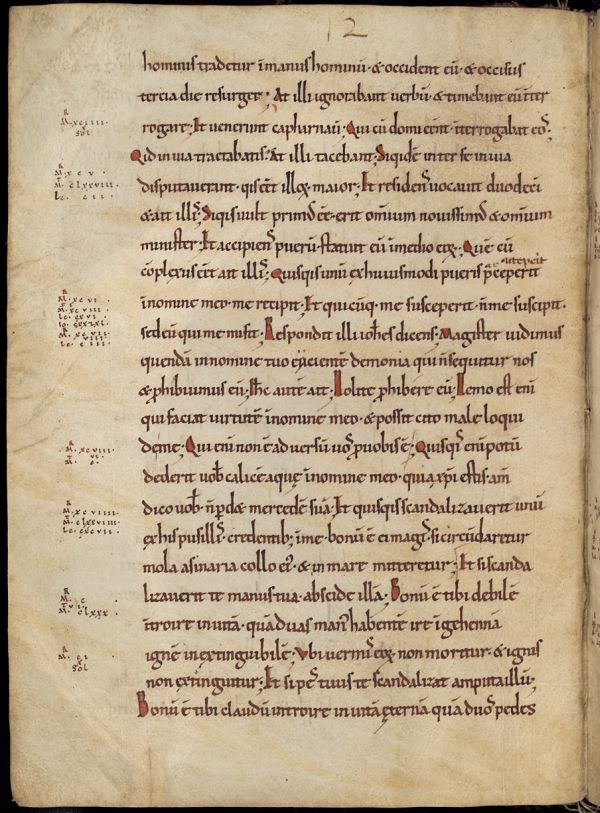 2
hominis tradetur ī manus hominū · & occident eū · & occisus
tercia die resurget; At illi ignorabant verbū · & timebant eū īter
rogare; Et venerunt capharnaū; Qui cū domi eēnt · īterrogabat eoſ;
Quid in uia tractabatis; At illi tacebant; Siqidē inter se in uia
disputauerant · qis eēt illoꝝ maior; Et residenſ uocauit duodecī
& ait illiſ; Siqis uult primꝰ eē · erit omīum nouissimꝰ & omīum
minister; Et accipienſ puerū · statuit eū ī medio eoꝝ; Quē cū
cōplexus eēt ait illiſ; Quisqis unū ex huiusmodi pueris
ī nomine meo · me recipit · Et quicūq; me susceperit · ñ me suscipit ·
sed eū qui me misit; Respondit illi ioħes dicens · Magister uidimus
quendā in nomine tuo eicientē demonia qui ñ sequitur nos
& ꝓhibuimus eū; Iħc autē ait; Nolite ꝓhibere eū; Nemo est enī
qui faciat uirtutē ī nomine meo · & possit cito male loqui
de me; Qui enī non ē aduersū uoſ ꝓ uobis ē; Quisqiſ enī potū
dederit uob̄ calicē aquę ī nomine meo · quia xp̄i estis · am̄
dico uob̄ · ñ ꝑdꝫ mercedē suā; Et quisqis scandalizauerit unū
ex his pusilliſ · credentib; ī me · bonū ē ei magiſ · si circūdaretur
mola asinaria collo eiꝰ · & in mare mitteretur; Et si scanda
lizauerit te manus tua · abscide illā; Bonū ē tibi debilē
ītroire in uitā · quā duas manꝰ habentē ire ī gehennā
ignē inextinguibilē; Vbi uermiſ eoꝝ non moritur · & ignis
non extinguitur; Et si peſ tuus te scandalizat amputa illū;
Bonū ē tibi claudū introire in uitā ęternā quā duoſ pedes